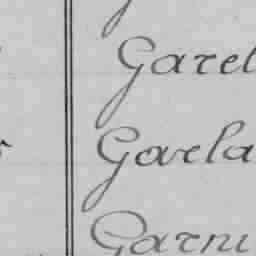 Garel
Garla
Garni